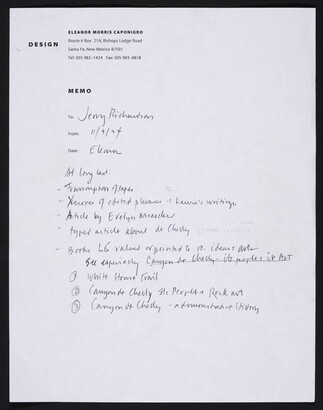 ELEANOR MORRIS CAPONIGRO
DESIGN
Route 4 Box 21A, Bishops Lodge Road
Santa Fe, New Mexico 87501
Tel: 505 982-1424 Fax: 505 983-8818
MEMO
To: Jerry Richardson
From: 11/9/94
Date: Eleanor
At long last:
- Transcription of tapes
- Xeroxes of edited + Laura's writings
- Article by Evelyn
- typed article about de Chelly
- Books LG valued or to
See especially Canyon de Chelly - Its people + its Art
① White House Trail
② Canyon de Chelly Its People + Rock art
③ Canyon de Chelly - administrative History